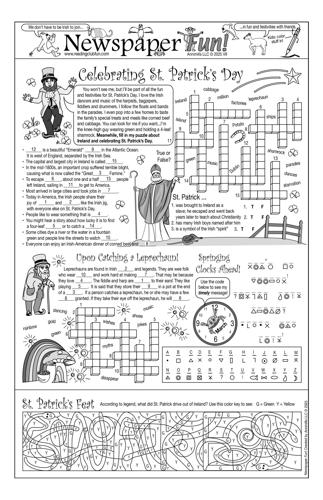 We don't have to be Irish to join...
...in fun and festivities with friends.
Newspaper Fun!
www.readingclubfun.com
Annimills LLC © 2025 V8
Kids: color stuff in!
Celebrating St. Patrick's Day
You won't see me, but I'll be part of all the fun
and festivities for St. Patrick's Day. I love the Irish
dancers and music of the harpists, bagpipers,
fiddlers and drummers. I follow the floats and bands
in the parades. I even pop into a few homes to taste
the family's special treats and meals like corned beef
and cabbage. You can look for me if you want...I'm
the knee-high guy wearing green and holding a 4-leaf
shamrock. Meanwhile, fill in my puzzle about
Ireland and celebrating St. Patrick's Day.
12 is a beautiful "Emerald" 8 in the Atlantic Ocean.
It is west of England, separated by the Irish Sea.
• The capital and largest city in Ireland is called 15
• In the mid-1800s, an important crop suffered terrible blight,
causing what is now called the "Great 3 Famine."
• To escape 6 about one and a half 13 people
left Ireland, sailing in 11 to get to America.
• Most arrived in large cities and took jobs in 7
• Today in America, the Irish people share their
joy of 1 and 2 like the Irish jig,
with everyone else on St. Patrick's Day.
• People like to wear something that is 4
• You might hear a story about how lucky it is to find
a four-leaf 5 or to catch a 14
• Some cities dye a river or the water in a fountain
green and people line the streets to watch 10
• Everyone can enjoy an Irish-American dinner of corned beef and 9
cabbage
million
factories
leprechaun
ships
island
Ireland
Potato
music
Dublin
shamrock
green
parades
dances
starvation
True or
False?
St. Patrick ...
1. was brought to Ireland as a
slave, he escaped and went back
years later to teach about Christianity T F
2. has many Irish boys named after him T F
3. is a symbol of the Irish "spirit" T F
Upon Catching a Leprechaun!
Leprechauns are found in Irish 2 and legends. They are wee folk
who wear 10 and work hard at making 7. That may be because
they love 4. The fiddle and harp are 1 to their ears! They like
playing 5. It is said that they store their 8 in a pot at the end
of a 3. If a person catches a leprechaun, he or she may have a few
granted. If they take their eye off the leprechaun, he will 6
dancing
green
music
shoes
gold
wishes
jokes
rainbow
myths
disappear
Springing
Clocks Ahead!
Use the code
below to see my
timely message!
A B C D E F G H I J K L M
N O P Q R S T U V W X Y Z
St. Patrick's Feat
According to legend, what did St. Patrick drive out of Ireland? Use this color key to see: G = Green Y = Yellow
Newspaper Fun! Created by Annimills LLC © 2025